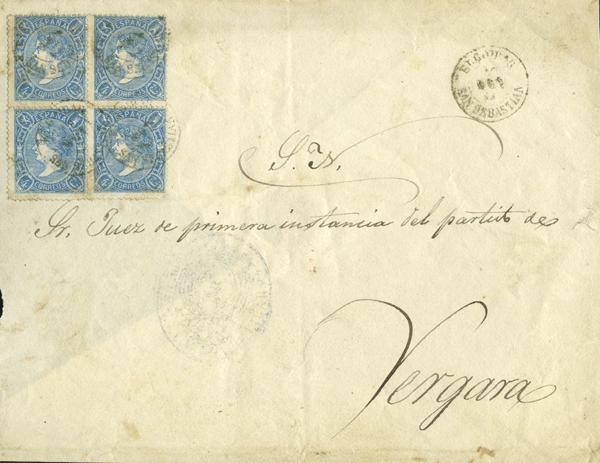 ESPAÑA ESPAÑA
CORREOS CORREOS
ESPAÑA ESPAÑA
CORREOS CORREOS
SAN SEBASTIAN
S. N.
Sr. Juez de primera instancia del partido de
Vergara